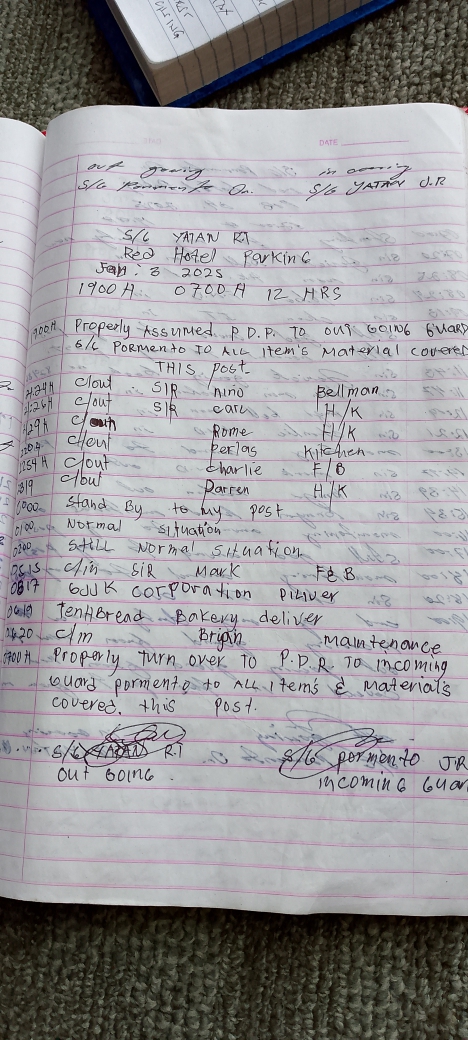 LIST
out going in coming
S/G Pormento On. S/G YATAN J.R
DATE
S/G YATAN R.T
Red Hotel Parking
Jan. 3 2025
1900 H 0700 H 12 HRS
1900H Properly Assumed P.D.P. TO out GOING GUARD
S/G PORMENTO TO ALL Item's Material covered
THIS post.
c/out SIR nino Bellman
c/out SIR carl H/K
c/out Rome H/K
c/out perlas Kitchen
2254 H c/out charlie F/B
c/out Darren H/K
0000 Stand By to my post
0100 Normal situation
0200 STILL Normal situation
0515 c/in SIR Mark F&B
0617 corporation Diliver
0619 Bread Bakery deliver
0620 c/in Bryan maintenance
0700 H Properly Turn over TO P.D.R. TO incoming
Guard pormento to ALL items & Material's
covered. this post.
S/G YATAN R.T S/G pormento JR
out GOING. incoming Guar